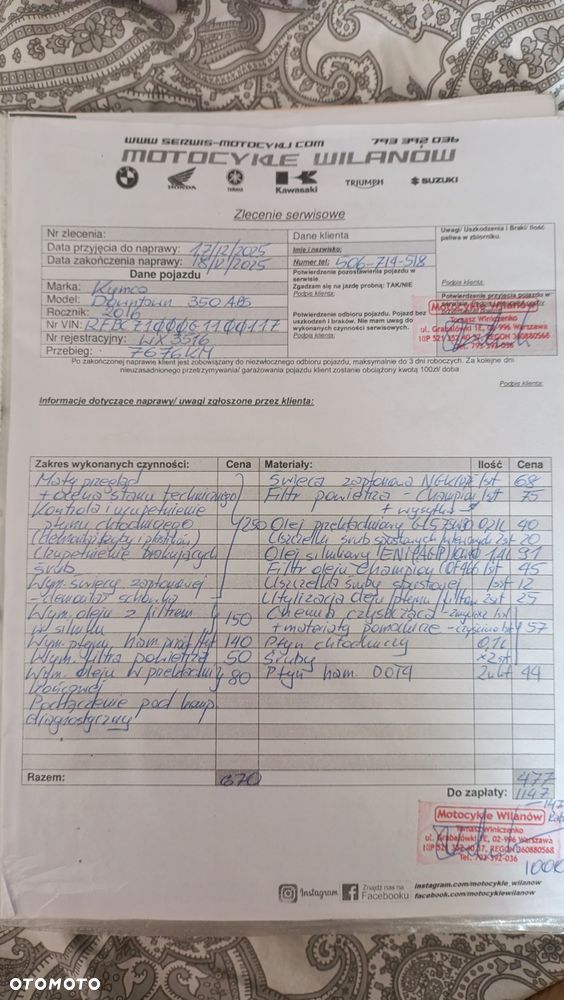 WWW SERWIS-MOTOCYKLI.COM 793 392 036
MOTOCYKLE WILANÓW
HONDA YAMAHA Kawasaki TRIUMPH SUZUKI
Zlecenie serwisowe
Nr zlecenia:
Data przyjęcia do naprawy: 17/12/2025
Data zakończenia naprawy: 18/12/2025
Dane pojazdu
Marka: Kymco
Model: Downtown 350 ABS
Rocznik: 2016
Nr VIN:
Nr rejestracyjny: WX 3576
Przebieg: 7676 KM
Dane klienta
Imię i nazwisko:
Numer tel: 506-714-518
Potwierdzenie pozostawienia pojazdu w serwisie
Zgadzam się na jazdę próbną: TAK/NIE
Podpis klienta:
Potwierdzenie odbioru pojazdu. Pojazd bez uszkodzeń i braków. Nie mam uwag do wykonanych czynności serwisowych.
Podpis klienta:
Uwagi/ Uszkodzenia i Braki/ Ilość paliwa w zbiorniku.
Podpis klienta:
Potwierdzenie przyjęcia pojazdu w
Motocykle Wilanów
Tomasz Winiczenko
ul. Grabalówki 1E, 02-996 Warszawa
NIP 521 352 40 37, REGON 360880568
Tel. 793-392-036
Po zakończonej naprawie klient jest zobowiązany do niezwłocznego odbioru pojazdu, maksymalnie do 3 dni roboczych. Za kolejne dni
nieuzasadnionego przetrzymywania/ garażowania pojazdu klient zostanie obciążony kwotą 100zł/ doba
Podpis klienta:
Informacje dotyczące naprawy/ uwagi zgłoszone przez klienta:
Zakres wykonanych czynności: Cena Materiały: Ilość Cena
Mały przegląd Świeca zapłonowa NGK 1szt 68
+ ocena stanu technicznego Filtr powietrza - Champion 1szt 75
Kontrola i uzupełnienie + wysyłka
płynu chłodniczego 250 Olej przekładniowy 75W90 0,2l 40
Uszczelki śrub spustowych 2szt 20
Uzupełnienie brakujących Olej silnikowy (ENI 91
śrub Filtr oleju Champion 1szt 45
Wym. świecy zapłonowej Uszczelka śruby spustowej 1szt 12
Utylizacja oleju płynu filtrów 2szt 25
Wym. oleju z filtrem 150 Chemia czyszcząca
w silniku + materiały pomocnicze 57
Wym. płynu ham. przód/tył 140 Płyn chłodniczy 0,1l
Wym. filtra powietrza 50 Śruby x2szt
Wym. oleju w przekładni 80 Płyn ham. DOT4 44
końcowej
Podłączenie pod komp.
diagnostyczny
Razem: 670 477
Do zapłaty: 1147
-147
Motocykle Wilanów
Tomasz Winiczenko
ul. Grabalówki 1E, 02-996 Warszawa
NIP 521 352 40 37, REGON 360880568
Tel. 793-392-036
1000
Instagram Znajdź nas na Facebooku
instagram.com/motocykle_wilanow
facebook.com/motocyklewilanow
OTOMOTO